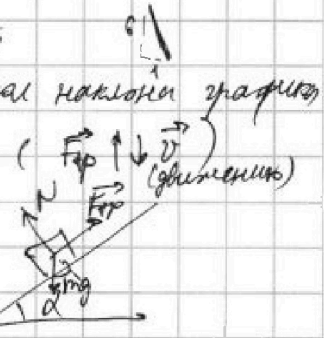 6
1
наклона графика
( Fтр ↑ ↓ v )
(движению)
N
Fтр
mg
α